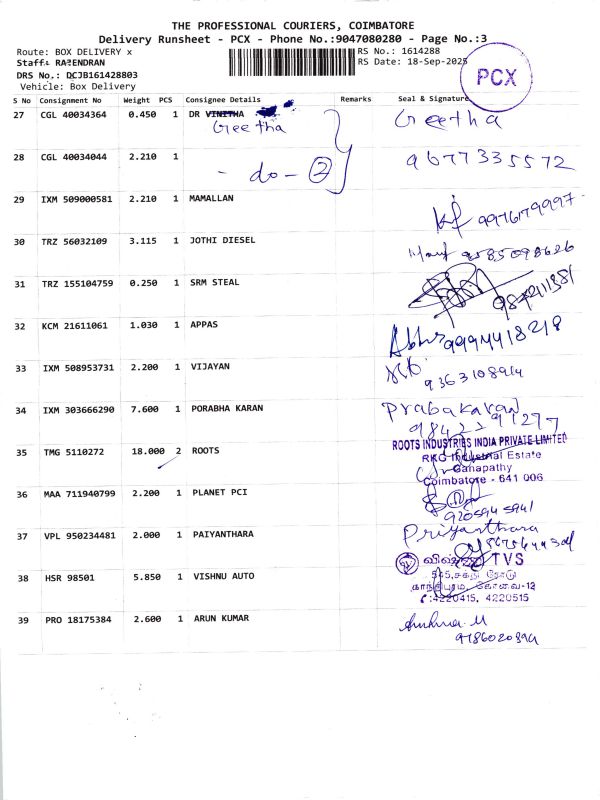 THE PROFESSIONAL COURIERS, COIMBATORE
Delivery Runsheet - PCX - Phone No.:9047080280 - Page No.:3
Route: BOX DELIVERY x RS No.: 1614288
Staff: RAJENDRAN RS Date: 18-Sep-2025
DRS No.: DCJB161428803
Vehicle: Box Delivery
PCX
S No Consignment No Weight PCS Consignee Details Remarks Seal & Signature
27 CGL 40034364 0.450 1 DR VINITHA Geetha
Geetha
28 CGL 40034044 2.210 1 9677335572
- do - 2
29 IXM 509000581 2.210 1 MAMALLAN
9976179997
30 TRZ 56032109 3.115 1 JOTHI DIESEL
31 TRZ 155104759 0.250 1 SRM STEAL
32 KCM 21611061 1.030 1 APPAS
9994418218
33 IXM 508953731 2.200 1 VIJAYAN
9363108914
34 IXM 303666290 7.600 1 PORABHA KARAN Prabakaran
ROOTS INDUSTRIES INDIA PRIVATE LIMITED
35 TMG 5110272 18.000 2 ROOTS RKG Industrial Estate
Ganapathy
Coimbatore - 641 006
36 MAA 711940799 2.200 1 PLANET PCI
37 VPL 950234481 2.000 1 PAIYANTHARA Priyanthara
விஷ்ணு TVS
38 HSR 98501 5.850 1 VISHNU AUTO
காந்திபுரம், கோவை-12
:4220415, 4220515
39 PRO 18175384 2.600 1 ARUN KUMAR